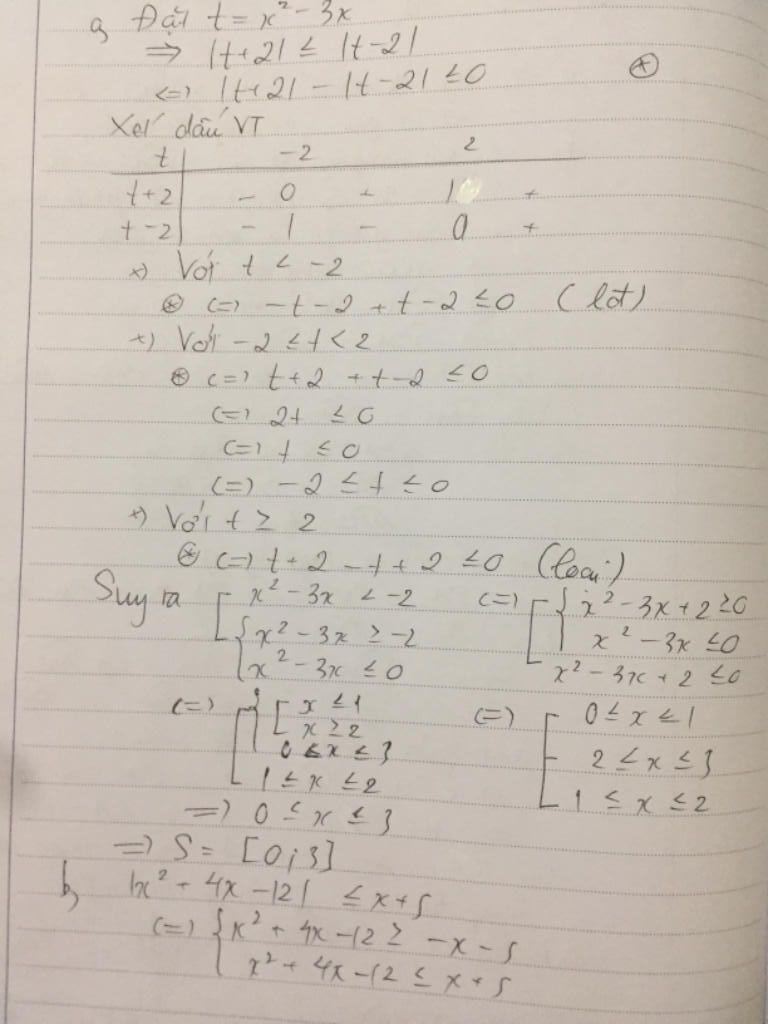 a, Đặt t = x² - 3x
=> |t+2| ≤ |t-2|
<=> |t+2| - |t-2| ≤ 0 (*)
Xét dấu VT
t | -2 2
t+2 | - 0 + | +
t-2 | - | - 0 +
+) Với t < -2
(*) <=> -t - 2 + t - 2 ≤ 0 (lđt)
+) Với -2 ≤ t < 2
(*) <=> t+2 + t-2 ≤ 0
<=> 2t ≤ 0
<=> t ≤ 0
<=> -2 ≤ t ≤ 0
+) Với t ≥ 2
(*) <=> t+2 - t + 2 ≤ 0 (loại)
Suy ra [ x² - 3x < -2 <=> [ { x² - 3x + 2 ≥ 0
{ x² - 3x ≥ -2 x² - 3x ≤ 0
x² - 3x ≤ 0 x² - 3x + 2 ≤ 0
<=> [ { [ x ≤ 1 <=> [ 0 ≤ x ≤ 1
x ≥ 2
0 ≤ x ≤ 3 2 ≤ x ≤ 3
1 ≤ x ≤ 2 1 ≤ x ≤ 2
=> 0 ≤ x ≤ 3
=> S = [0; 3]
b, |x² + 4x - 12| ≤ x + 5
<=> { x² + 4x - 12 ≥ -x - 5
x² + 4x - 12 ≤ x + 5